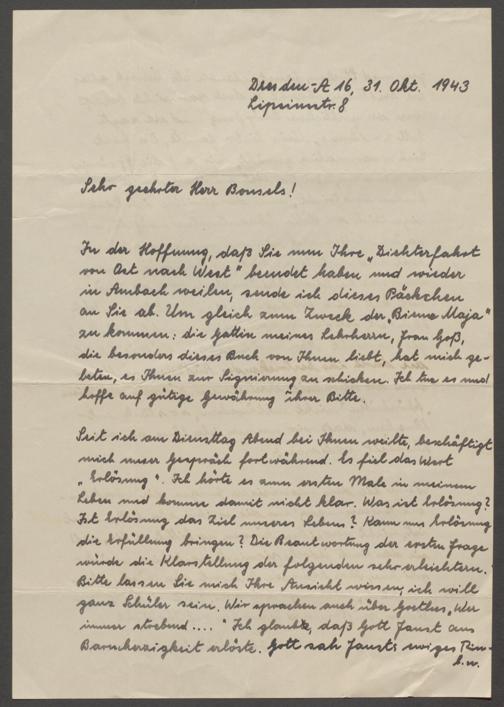 Dresden-A 16, 31. Okt. 1943
Lipsiusstr. 8
Sehr geehrter Herr Bonsels!
In der Hoffnung, daß Sie nun Ihre „Dichterfahrt
von Ost nach West" beendet haben und wieder
in Ambach weilen, sende ich dieses Päckchen
an Sie ab. Um gleich zum Zweck der „Biene Maja"
zu kommen: die Gattin meines Lehrherrn, Frau Goß,
die besonders dieses Buch von Ihnen liebt, hat mich ge-
beten, es Ihnen zur Signierung zu schicken. Ich tue es und
hoffe auf gütige Gewährung ihrer Bitte.
Seit ich am Dienstag Abend bei Ihnen weilte, beschäftigt
mich unser Gespräch fortwährend. Es fiel das Wort
„Erlösung". Ich hörte es zum ersten Male in meinem
Leben und komme damit nicht klar. Was ist Erlösung?
Ist Erlösung das Ziel unseres Lebens? Kann uns Erlösung
die Erfüllung bringen? Die Beantwortung der ersten Frage
würde die Klarstellung der folgenden sehr erleichtern.
Bitte lassen Sie mich Ihre Ansicht wissen, ich will
ganz Schüler sein. Wir sprachen auch über Goethes „Wer
immer strebend...." Ich glaubte, daß Gott Faust aus
Barmherzigkeit erlöste. Gott sah Fausts ewiges Rin-
b.w.